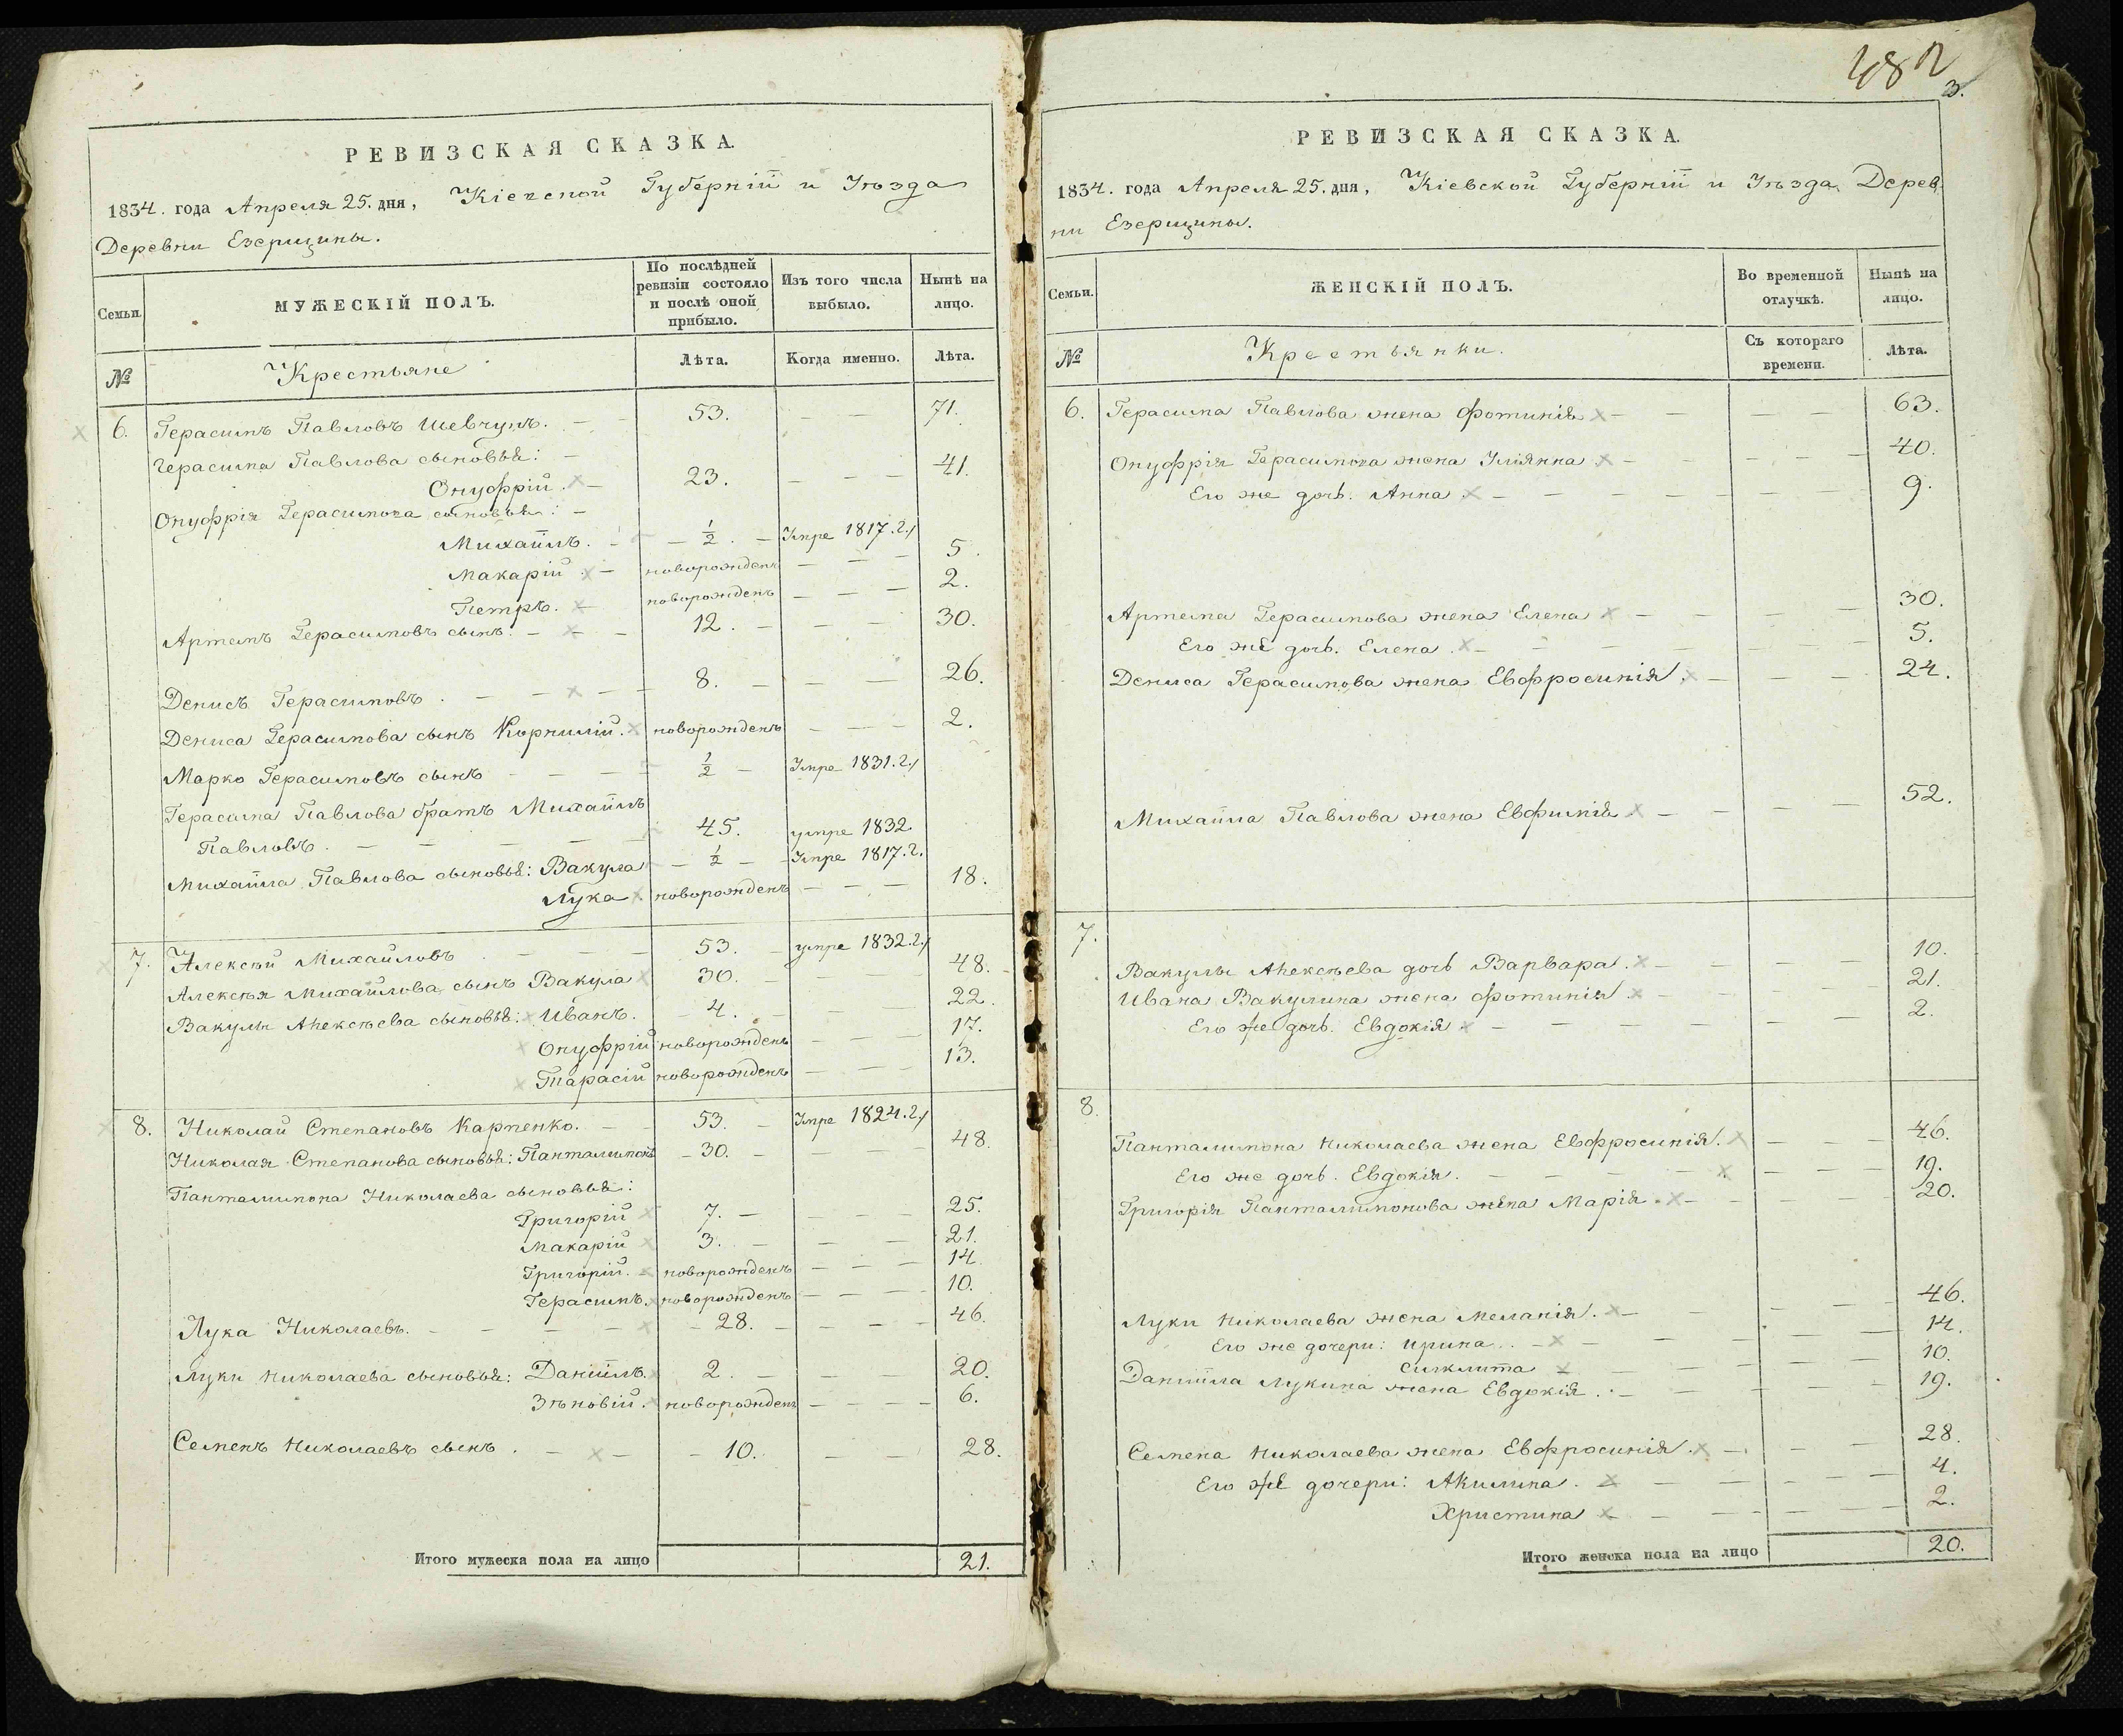 РЕВИЗСКАЯ СКАЗКА.
1834. года Апреля 25. дня, Кіевской Губерніи и Уѣзда
Деревни Езерищины.
Семьи.
МУЖЕСКІЙ ПОЛЪ.
По послѣдней ревизіи состояло и послѣ оной прибыло.
Изъ того числа выбыло.
Нынѣ на лицо.
№
Крестьяне
Лѣта.
Когда именно.
Лѣта.
6. Герасимъ Павловъ Шевчукъ. 53. — — 71.
Герасима Павлова сыновья:
Онуфрій. 23. — — — 41.
Онуфрія Герасимова сыновья:
Михаилъ. ½. Умре 1817. г.
Макарій новорожденъ — — 5.
Петръ. новорожденъ — — — 2.
Артемъ Герасимовъ сынъ. 12. — — — 30.
Денисъ Герасимовъ. 8. — — — 26.
Дениса Герасимова сынъ Корнилій. новорожденъ — — — 2.
Марко Герасимовъ сынъ ½ Умре 1831. г.
Герасима Павлова братъ Михаилъ
Павловъ. 45. умре 1832
Михаила Павлова сыновья: Вакула ½ Умре 1817. г.
Лука новорожденъ — — — 18.
7. Алексѣй Михайловъ 53. умре 1832. г.
Алексѣя Михайлова сынъ Вакула 30. — — — 48.
Вакулы Алексѣева сыновья: Иванъ. 4. — — 22.
Онуфрій новорожденъ — — — 17.
Тарасій новорожденъ — — — 13.
8. Николай Степановъ Карпенко. 53. Умре 1824. г.
Николая Степанова сыновья: Панталимонъ 30. — — 48.
Панталимона Николаева сыновья:
Григорій 7. — — — 25.
Макарій 3. — — — 21.
Григорій. новорожденъ — — — 14.
Герасимъ. новорожденъ — — — 10.
Лука Николаевъ. 28. — — — 46.
Луки Николаева сыновья: Даніилъ. 2. — — — 20.
Зѣновій. новорожденъ — — — 6.
Семенъ Николаевъ сынъ. 10. — — 28.
Итого мужеска пола на лицо 21.
482
3.
РЕВИЗСКАЯ СКАЗКА.
1834. года Апреля 25. дня, Кіевской Губерніи и Уѣзда Дерев
ни Езерищины.
Семьи.
ЖЕНСКІЙ ПОЛЪ.
Во временной отлучкѣ.
Нынѣ на лицо.
№
Крестьянки.
Съ котораго времени.
Лѣта.
6. Герасима Павлова жена Фотинія — — 63.
Онуфрія Герасимова жена Уліянна — — — 40.
Его же дочь. Анна — — — 9.
Артема Герасимова жена Елена — — — 30.
Его же дочь. Елена. — — — 5.
Дениса Герасимова жена Евфросинія. — — — 24.
Михаила Павлова жена Евфимія — — — 52.
7.
Вакулы Алексѣева дочь Варвара. — — — 10.
Ивана Вакулина жена Фотинія. — — — 21.
Его же дочь. Евдокія — — — 2.
8.
Панталимона Николаева жена Евфросинія. — — — 46.
Его же дочь. Евдокія. — — — 19.
Григорія Панталимонова жена Марія. — — — 20.
Луки Николаева жена Меланія. — — — 46.
Его же дочери: Ирина. — — — 14.
Сиклита — — — 10.
Даніила Лукина жена Евдокія. — — — 19.
Семена Николаева жена Евфросинія. — — — 28.
Его же дочери: Акилина. — — — 4.
Христина — — — 2.
Итого женска пола на лицо 20.